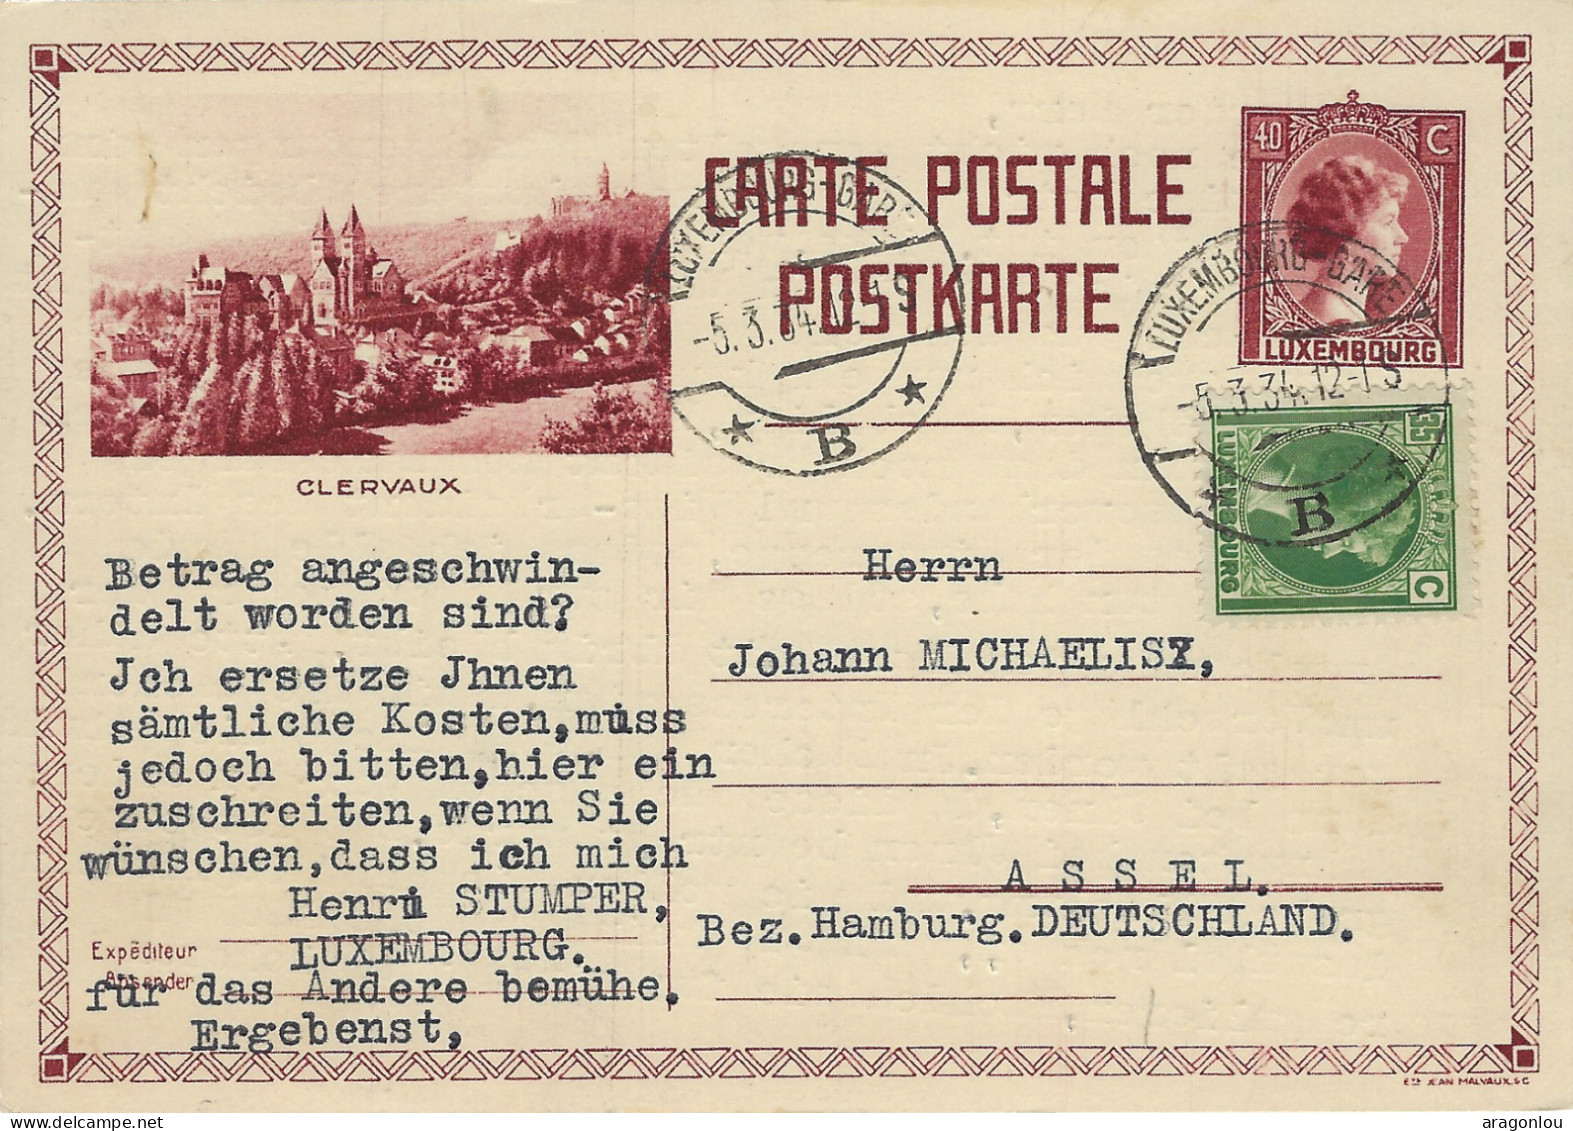 CARTE POSTALE
POSTKARTE
40 C
LUXEMBOURG
LUXEMBOURG-GARE
-5.3.34.12-1S
B
LUXEMBOURG-GARE
-5.3.34.12-1S
B
35 C
LUXEMBOURG
CLERVAUX
Betrag angeschwin-
delt worden sind?
Jch ersetze Jhnen
sämtliche Kosten,muss
jedoch bitten,hier ein
zuschreiten,wenn Sie
wünschen,dass ich mich
Henri STUMPER,
LUXEMBOURG.
Expéditeur
Absender
für das Andere bemühe.
Ergebenst,
Herrn
Johann MICHAELIS,
A S S E L.
Bez.Hamburg.DEUTSCHLAND.
Ets JEAN MALVAUX.SC
delcampe.net
aragonlou